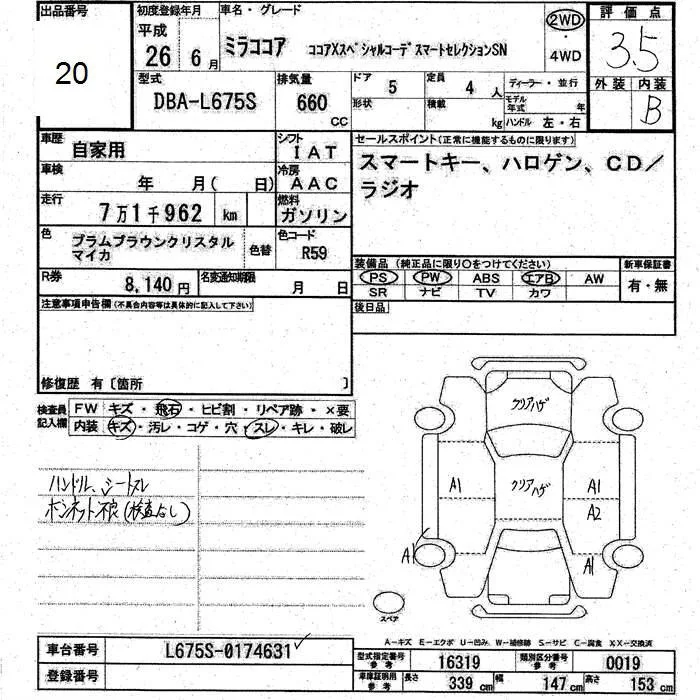 出品番号
20
初度登録年月
平成
26 6月
車名・グレード
ミラココア ココアXスペシャルコーデスマートセレクションSN
2WD
・
4WD
評価点
3.5
外装 内装
B
型式
DBA-L675S
排気量
660
CC
ドア 5
定員 4 人
ディーラー・並行
形状
積載 kg
モデル年式 年
ハンドル 左・右
車歴
自家用
シフト
IAT
車検
年 月( 日)
冷房
AAC
走行
7万1千962 km
燃料
ガソリン
色
プラムブラウンクリスタル
マイカ
色替
色コード
R59
R券
8,140 円
名変通知期限
月 日
セールスポイント(正常に機能するものに限ります)
スマートキー、ハロゲン、CD/
ラジオ
装備品 (純正品に限り○をつけてください)
PS PW ABS エアB AW
SR ナビ TV カワ
新車保証書
有・無
後日品
注意事項申告欄(不具合内容等は具体的に記入して下さい)
修復歴 有〔箇所 〕
検査員
記入欄
FW キズ・飛石・ヒビ割・リペア跡・×要
内装 キズ・汚レ・コゲ・穴・スレ・キレ・破レ
ハンドル、シートスレ
ボンネット不良(検査なし)
クリアハゲ
クリアハゲ
A1
A1
A2
A1
A1
スペア
A-キズ E-エクボ U-凹み W-補修跡 S-サビ C-腐食 XX-交換済
車台番号
L675S-0174631
登録番号
型式指定番号
参考
16319
類別区分番号
参考
0019
車庫証明用
参考
長さ 339 cm 幅 147 cm 高さ 153 cm